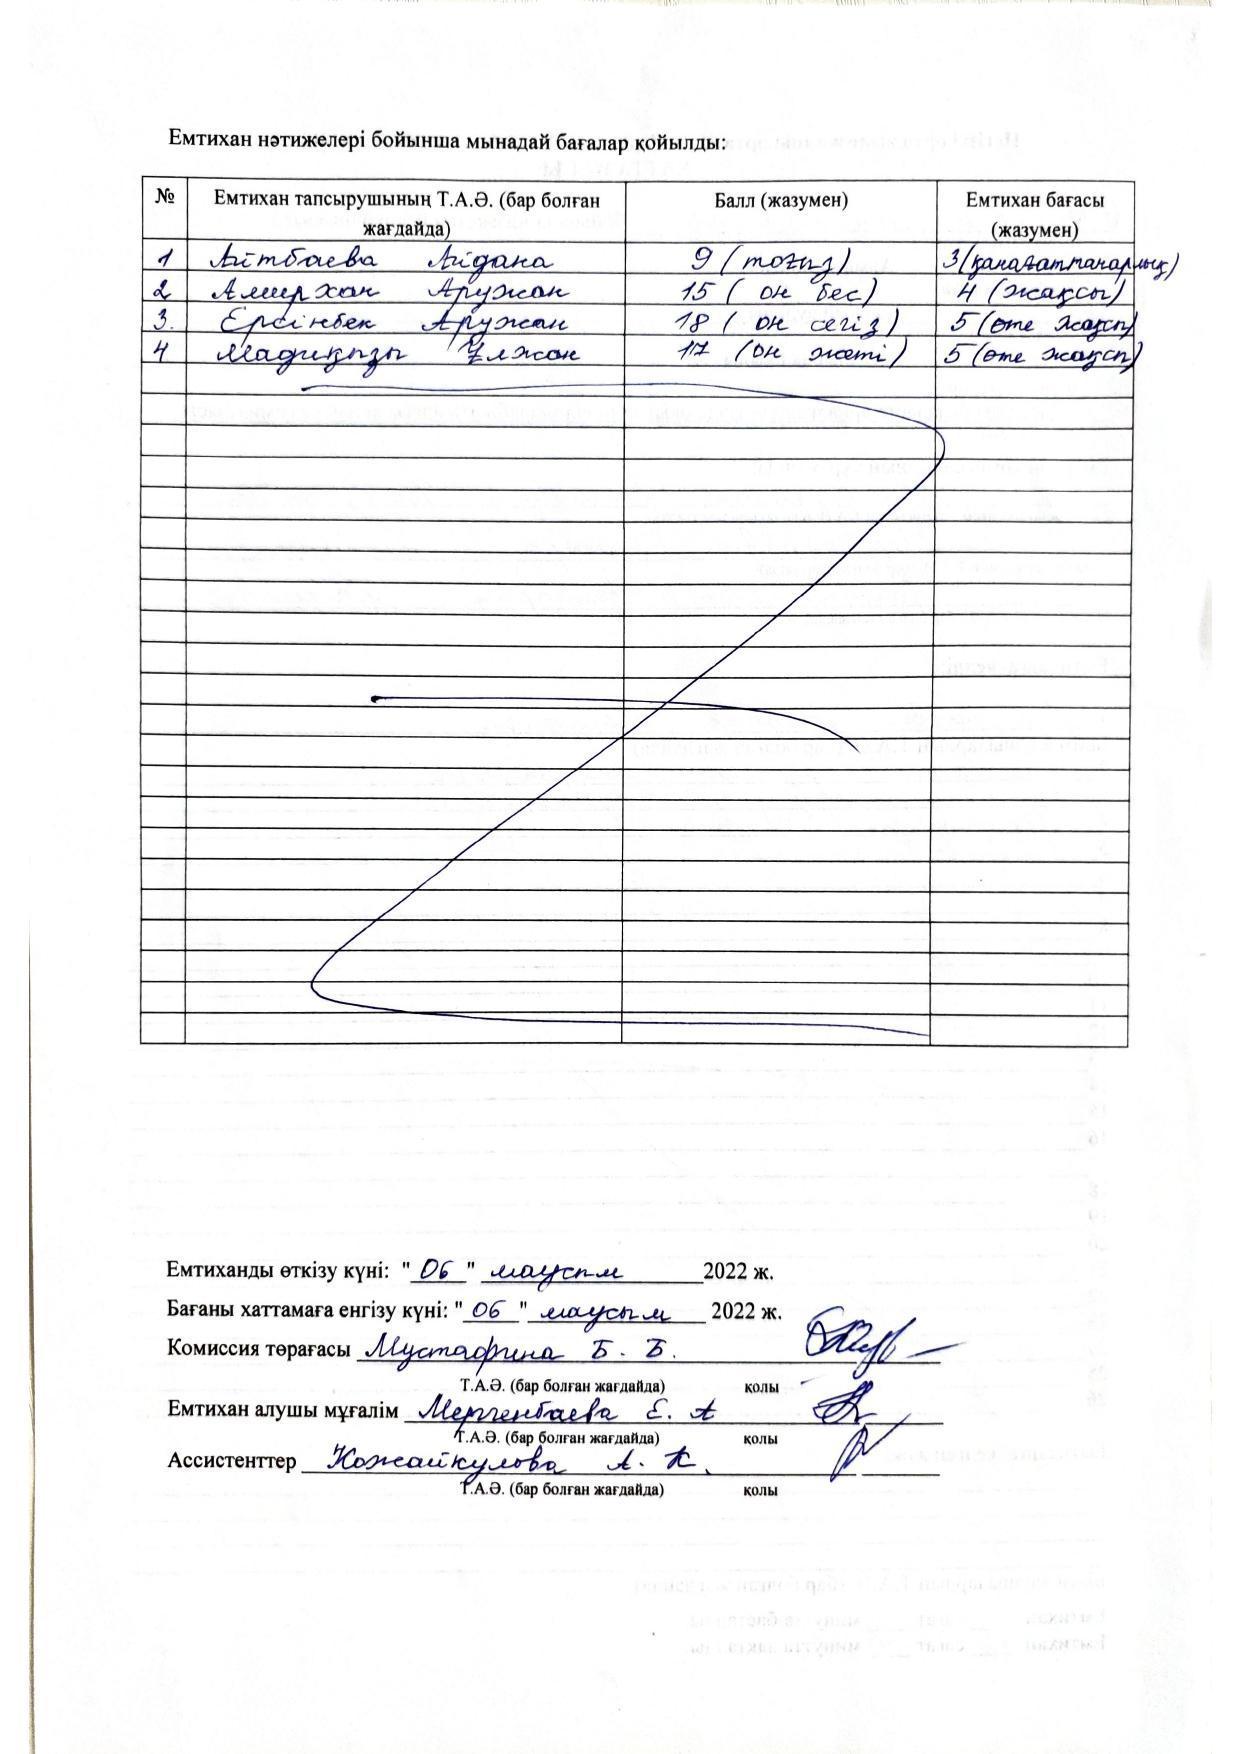 Емтихан нәтижелері бойынша мынадай бағалар қойылды:
№ Емтихан тапсырушының Т.А.Ә. (бар болған жағдайда) Балл (жазумен) Емтихан бағасы (жазумен)
1 Айтбаева Айдана 9 (тоғыз) 3 (қанағаттанарлық)
2 Амирхан Аружан 15 (он бес) 4 (жақсы)
3. Ерсінбек Аружан 18 (он сегіз) 5 (өте жақсы)
4 Мадиқызы Ұлжан 17 (он жеті) 5 (өте жақсы)
Емтиханды өткізу күні: "06" маусым 2022 ж.
Бағаны хаттамаға енгізу күні: "06" маусым 2022 ж.
Комиссия төрағасы Мустафина Б. Б.
Т.А.Ә. (бар болған жағдайда) қолы
Емтихан алушы мұғалім Мергенбаева Е. А
Т.А.Ә. (бар болған жағдайда) қолы
Ассистенттер Кожайкулова А. К.
Т.А.Ә. (бар болған жағдайда) қолы